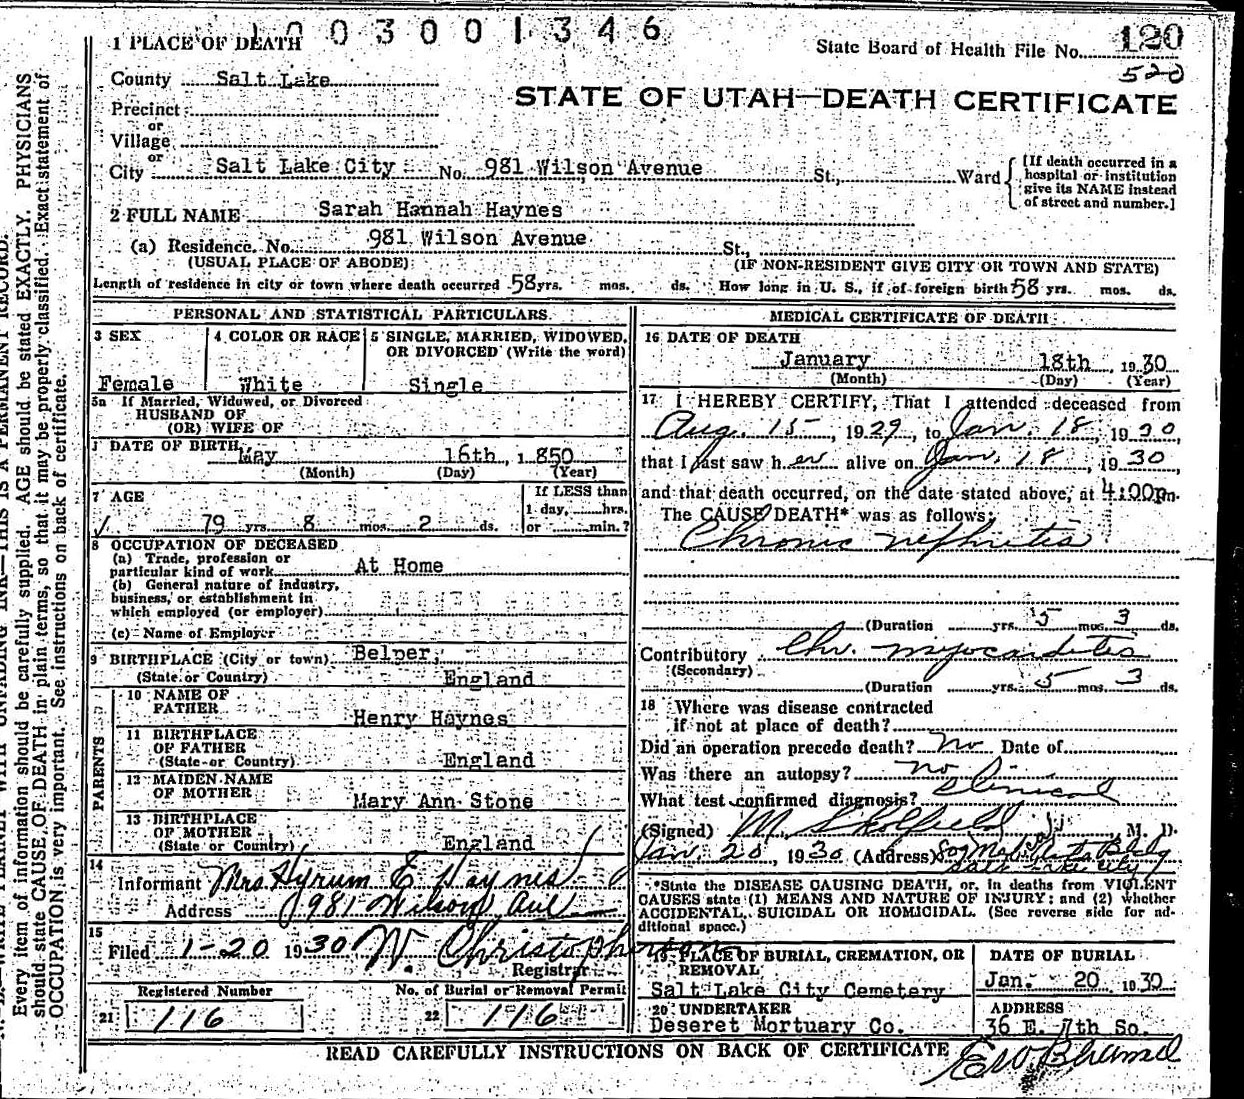 1003001346
1 PLACE OF DEATH
State Board of Health File No. 120
520
County Salt Lake
STATE OF UTAH—DEATH CERTIFICATE
Precinct
or
Village
or
City Salt Lake City No. 981 Wilson Avenue St., Ward
[If death occurred in a
hospital or institution
give its NAME instead
of street and number.]
2 FULL NAME Sarah Hannah Haynes
(a) Residence. No. 981 Wilson Avenue St.,
(USUAL PLACE OF ABODE) (IF NON-RESIDENT GIVE CITY OR TOWN AND STATE)
Length of residence in city or town where death occurred 58 yrs. mos. ds. How long in U. S., if of foreign birth 58 yrs. mos. ds.
PERSONAL AND STATISTICAL PARTICULARS
3 SEX
Female
4 COLOR OR RACE
White
5 SINGLE, MARRIED, WIDOWED,
OR DIVORCED (Write the word)
Single
5a If Married, Widowed, or Divorced
HUSBAND OF
(OR) WIFE OF
DATE OF BIRTH
May 16th, 1850
(Month) (Day) (Year)
7 AGE
79 yrs 8 mos. 2 ds.
If LESS than
1 day, hrs.
or min.?
8 OCCUPATION OF DECEASED
(a) Trade, profession or
particular kind of work At Home
(b) General nature of industry,
business, or establishment in
which employed (or employer)
(c) Name of Employer
9 BIRTHPLACE (City or town) Belper,
(State or Country) England
PARENTS
10 NAME OF
FATHER
Henry Haynes
11 BIRTHPLACE
OF FATHER
(State or Country) England
12 MAIDEN NAME
OF MOTHER
Mary Ann Stone
13 BIRTHPLACE
OF MOTHER
(State or Country) England
14
Informant Mrs Hyrum E Haynes
Address 981 Wilson Ave
15
Filed 1-20 1930 W. Christopherson
Registrar
Registered Number
21 116
No. of Burial or Removal Permit
22 116
MEDICAL CERTIFICATE OF DEATH
16 DATE OF DEATH
January 18th, 1930
(Month) (Day) (Year)
17 I HEREBY CERTIFY, That I attended deceased from
Aug. 15, 1929, to Jan. 18, 1930,
that I last saw her alive on Jan. 18, 1930
and that death occurred, on the date stated above, at 4:00pm.
The CAUSE DEATH* was as follows:
Chronic nephritis
(Duration yrs. 5 mos. 3 ds.
Contributory Chr. myocarditis
(Secondary)
(Duration yrs. 5 mos. 3 ds.
18 Where was disease contracted
if not at place of death?
Did an operation precede death? no Date of
Was there an autopsy? no
What test confirmed diagnosis? Clinical
(Signed) M. Skolfield, M. D.
Jan. 20, 1930 (Address) Bldg
Salt Lake City
*State the DISEASE CAUSING DEATH, or, in deaths from VIOLENT
CAUSES state (1) MEANS AND NATURE OF INJURY; and (2) whether
ACCIDENTAL, SUICIDAL OR HOMICIDAL. (See reverse side for ad-
ditional space.)
19 PLACE OF BURIAL, CREMATION, OR
REMOVAL
Salt Lake City Cemetery
DATE OF BURIAL
Jan. 20 1930
20 UNDERTAKER
Deseret Mortuary Co.
ADDRESS
36 E. 7th So.
READ CAREFULLY INSTRUCTIONS ON BACK OF CERTIFICATE
WRITE PLAINLY WITH UNFADING INK—THIS IS A PERMANENT RECORD.
Every item of information should be carefully supplied. AGE should be stated EXACTLY. PHYSICIANS
should state CAUSE OF DEATH in plain terms, so that it may be properly classified. Exact statement of
OCCUPATION is very important. See instructions on back of certificate.